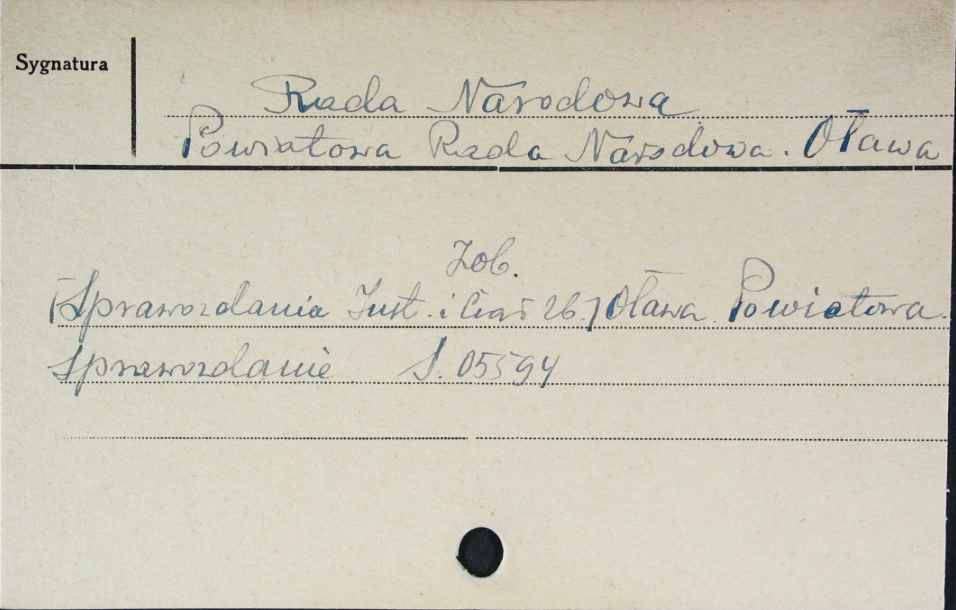 Sygnatura
Rada Narodowa
Powiatowa Rada Narodowa. Oława
Zob.
[Sprawozdania Inst. i Ciał zb.] Oława. Powiatowa.
Sprawozdanie S. 05594